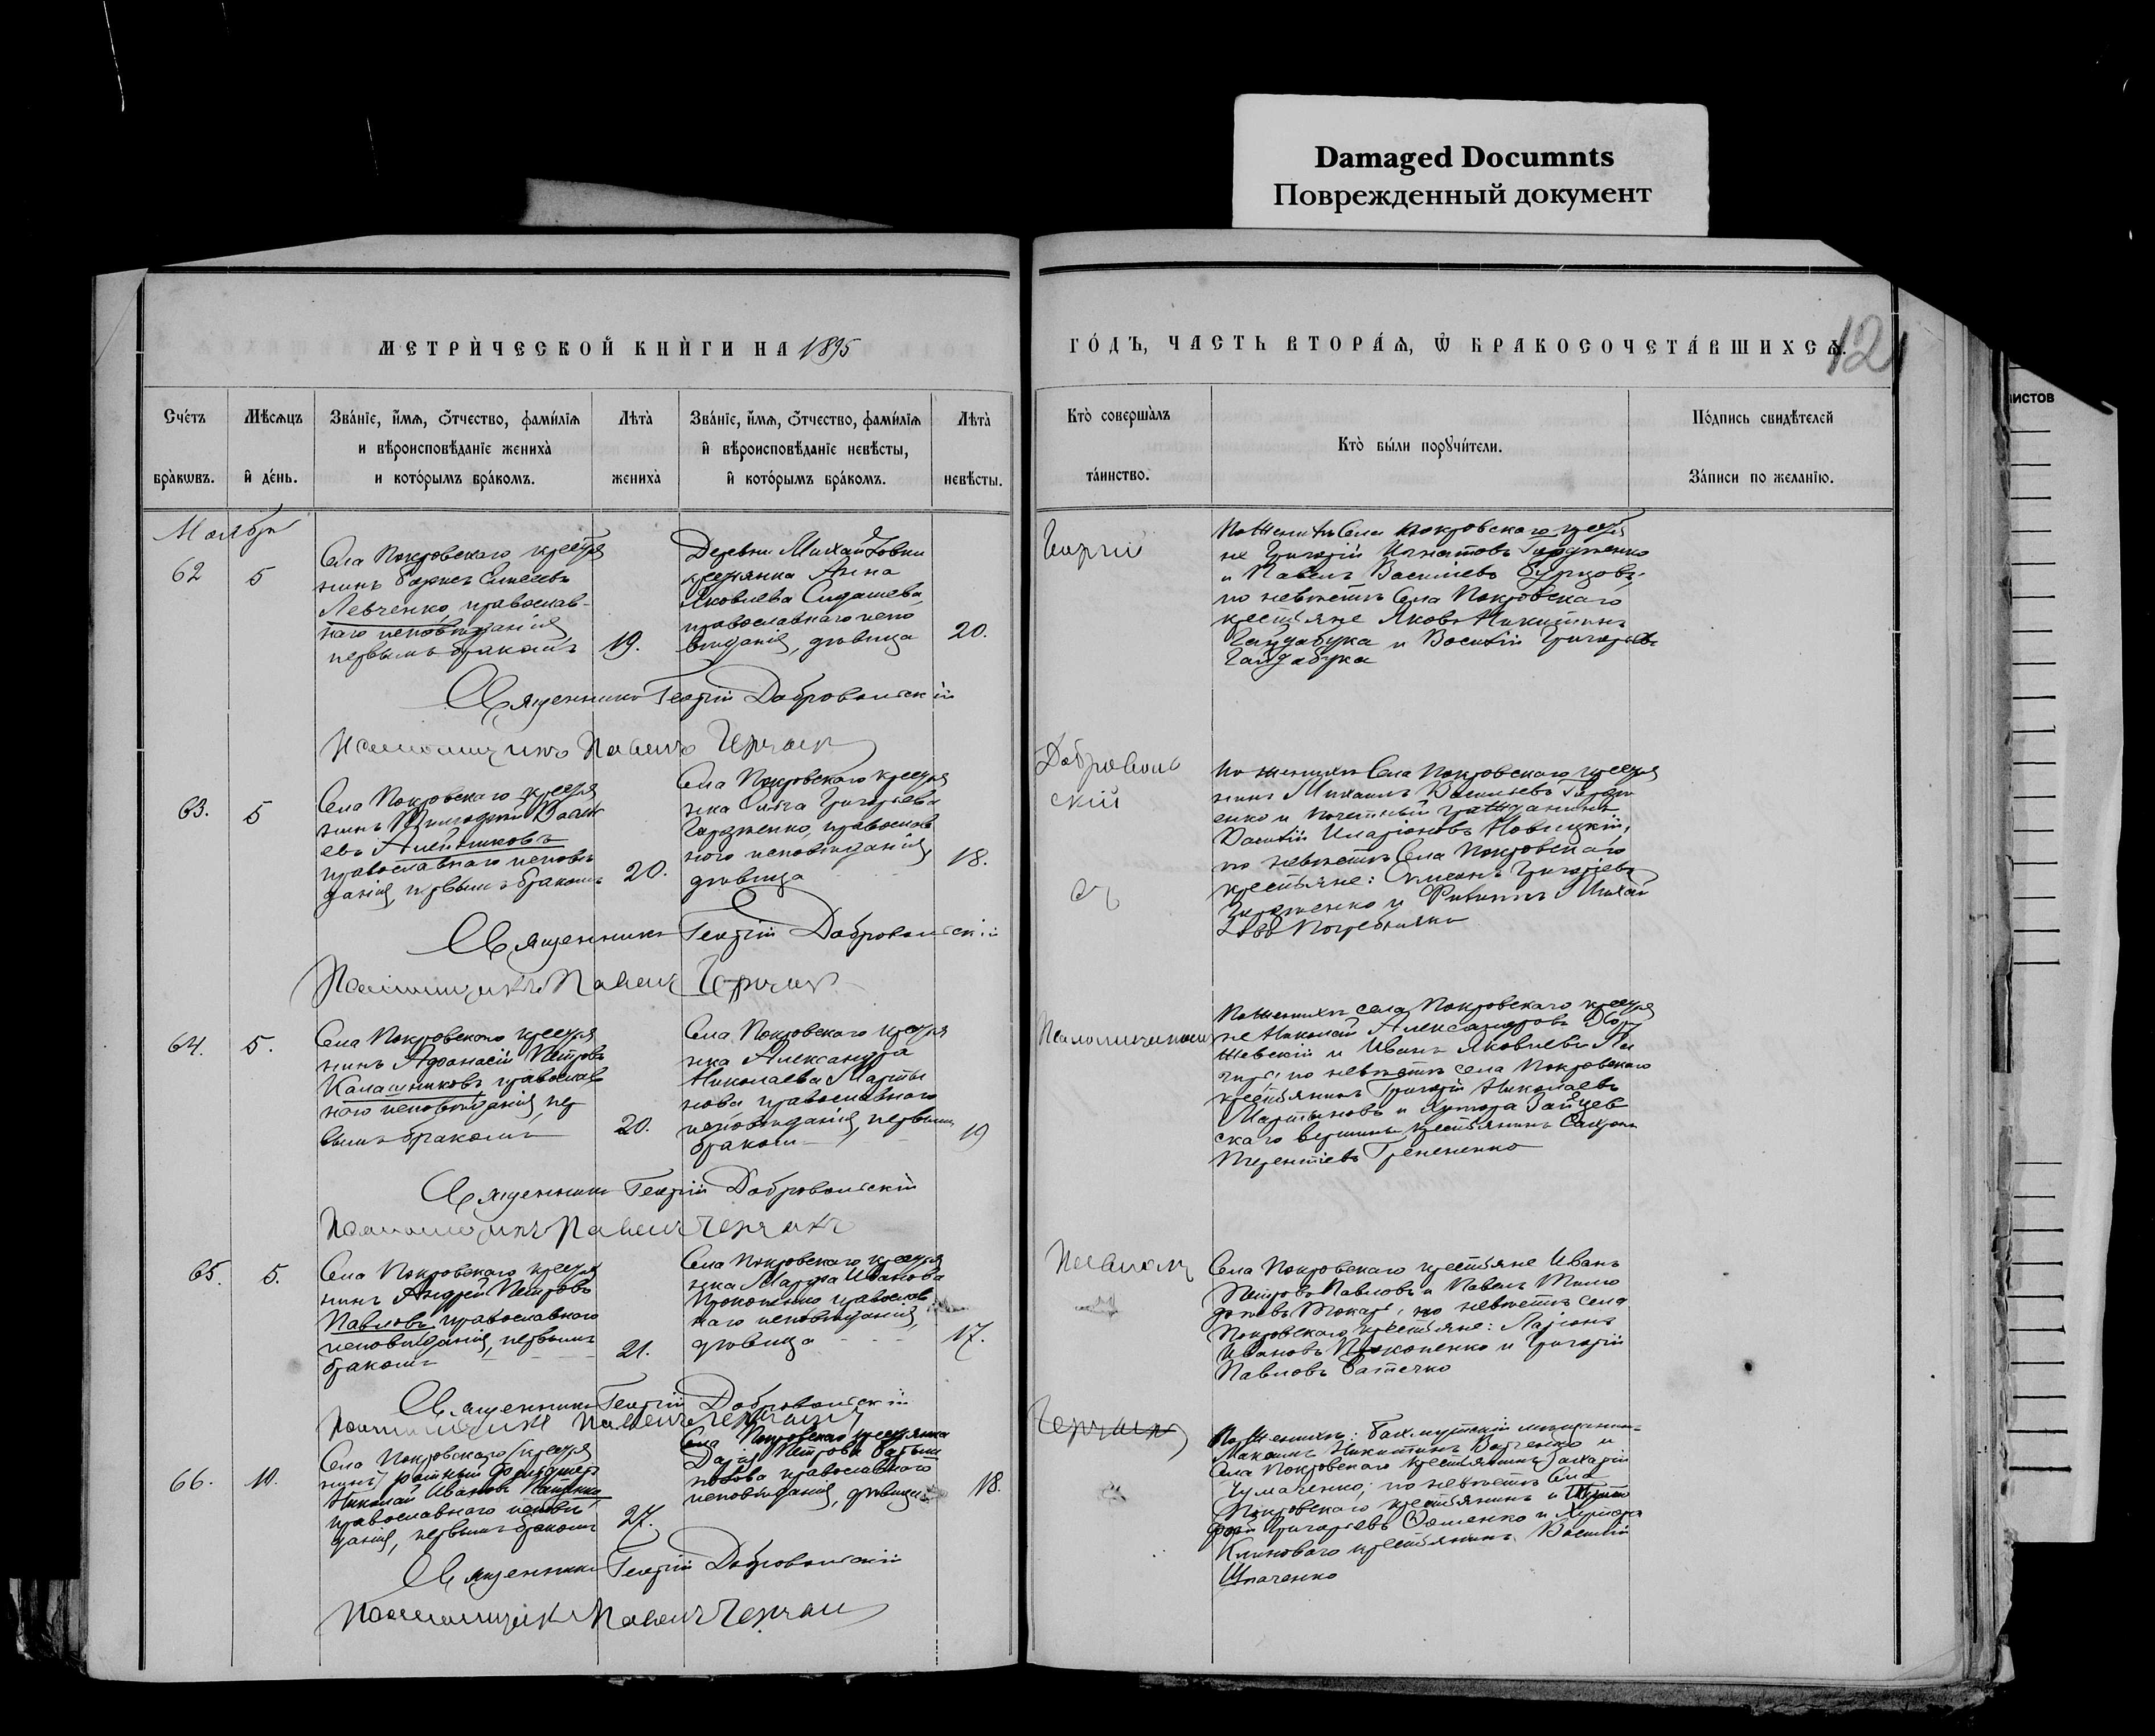 Damaged Documnts
Поврежденный документ
МЕТРИ́ЧЕСКОЙ КНИ́ГИ НА 1895
ГО́ДЪ, ЧАСТЬ ВТОРА́Я, Ѿ БРАКОСОЧЕТА́ВШИХСѦ.
12
листов
Сче́тъ бра́кѡвъ.
Мѣ́сѧцъ и́ де́нь.
Зва́нїе, и́мѧ, ѻ́тчество, фами́лїѧ и вѣроисповѣ́данїе жениха̀ и кото́рымъ бра́комъ.
Лѣта̀ жениха̀
Зва́нїе, и́мѧ, ѻ́тчество, фами́лїѧ и́ вѣроисповѣ́данїе невѣ́сты, и́ кото́рымъ бра́комъ.
Лѣта̀ невѣ́сты.
Кто̀ соверша́лъ та́инство.
Кто̀ бы́ли порꙋчи́тели.
По́дпись свидѣ́телей За́писи по жела́нїю.
Ноября
62
5
Села Покровскаго крестья
нинъ Борисъ
Левченко, православ-
наго исповѣданія,
первымъ бракомъ
19.
Деревни Михайловки
крестьянка Анна
Яковлева Сидашева,
православнаго испо
вѣданія, дѣвица
20.
Георгій
По женихѣ Села Покровскаго крестья
не Григорій Игнатовъ Гордженко
и Павелъ Васильевъ Бурцовъ,
по невѣстѣ Села Покровскаго
крестьяне Яковъ Никитинъ
Гайдабука и Василій Григорьевъ
Гайдабука
Священникъ Георгій Добровольскій
Псаломщикъ Павелъ
63.
5
Села Покровскаго крестья
нинъ
евъ
православнаго исповѣ
данія, первымъ бракомъ
20.
Села Покровскаго крестья
нка Григорьева
Гордженко, православ
наго исповѣданія,
дѣвица
18.
Доброволь
скій
съ
По женихѣ Села Покровскаго крестья
нинъ Михаилъ Васильевъ Гордж
енко и почетный гражданинъ
Василій Иларіоновъ Новицкій,
по невѣстѣ Села Покровскаго
крестьяне: Григорьевъ
Гордженко и Филиппъ Михай
ловъ Погребнякъ
Священникъ Георгій Добровольскій
Псаломщикъ Павелъ
64.
5.
Села Покровскаго крестья
нинъ Афанасій Петровъ
Калашниковъ, православ
наго исповѣданія, пер
вымъ бракомъ
20.
Села Покровскаго крестья
нка Александра
Николаева Марты
нова православнаго
исповѣданія, первымъ
бракомъ
19
Псаломщикомъ
По женихѣ села Покровскаго крестья
не Николай Александровъ
и Иванъ Яковлевъ
по невѣстѣ села Покровскаго
крестьянинъ Григорій Николаевъ
Мартыновъ и хутора Зайцев
скаго крестьянинъ
Терентіевъ
Священникъ Георгій Добровольскій
Псаломщикъ Павелъ
65.
5.
Села Покровскаго крестья
нинъ Андрей Петровъ
Павловъ, православнаго
исповѣданія, первымъ
бракомъ
21.
Села Покровскаго крестья
нка Марфа Иванова
Прокопенко православ
наго исповѣданія,
дѣвица
17.
Павломъ
Села Покровскаго крестьяне Иванъ
Петровъ Павловъ и Павелъ Тимо
феевъ Токарь, по невѣстѣ села
Покровскаго крестьяне: Ларіонъ
Ивановъ Прокопенко и Григорій
Павловъ Батечко
Священникъ Георгій Добровольскій
Псаломщикъ Павелъ
66.
10.
Села Покровскаго крестья
нинъ ротный фельдшеръ
Николай Ивановъ
православнаго исповѣ
данія, первымъ бракомъ
27.
Села Покровскаго крестьянка
Дарія Петрова
православнаго
исповѣданія, дѣвица
18.
По женихѣ: Бахмутскій мѣщанинъ
Максимъ Никитинъ и
Села Покровскаго крестьянинъ Захарій
Чумаченко; по невѣстѣ Села
Покровскаго крестьянинъ
Григорьевъ и хутора
Клиноваго крестьянинъ Василій
Шпаченко
Священникъ Георгій Добровольскій
Псаломщикъ Павелъ